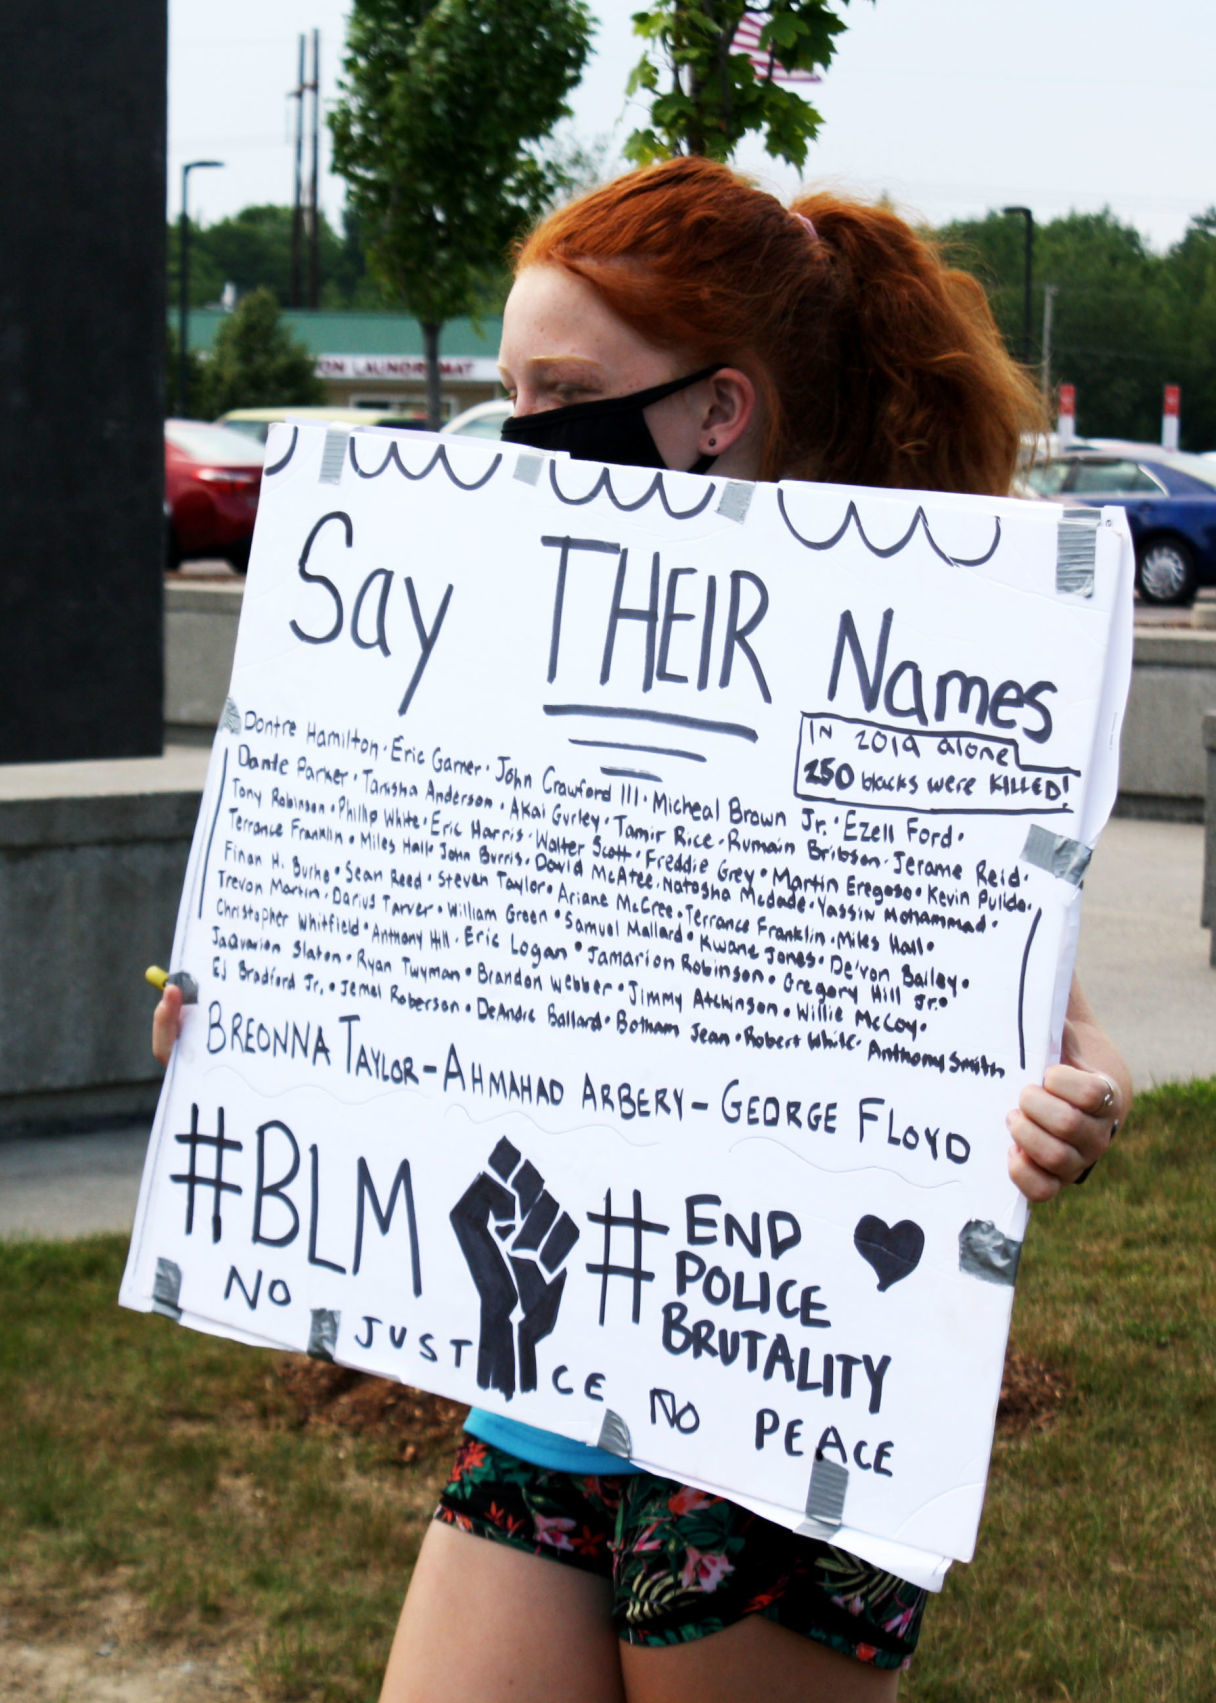 ON LAUNDROMAT
Say THEIR Names
IN 2019 alone
250 blacks were KILLED!
Dontre Hamilton · Eric Garner · John Crawford III · Micheal Brown Jr. · Ezell Ford ·
Dante Parker · Tanisha Anderson · Akai Gurley · Tamir Rice · Rumain Bribson · Jerame Reid ·
Tony Robinson · Phillip White · Eric Harris · Walter Scott · Freddie Grey · Martin Eregoso · Kevin Pullda ·
Terrance Franklin · Miles Hall · John Burris · David McAtee · Natosha Mcdade · Yassin Mohammad ·
Finan H. Burhe · Sean Reed · Steven Taylor · Ariane McCree · Terrance Franklin · Miles Hall ·
Trevon Martin · Darius Tarver · William Green · Samuel Mallard · Kwane Jones · De'von Bailey ·
Christopher Whitfield · Anthony Hill · Eric Logan · Jamarion Robinson · Gregory Hill Jr. ·
Jaqvarion Slaton · Ryan Twyman · Brandon Webber · Jimmy Atchinson · Willie McCoy ·
EJ Bradford Jr. · Jemel Roberson · DeAndre Ballard · Botham Jean · Robert White · Anthony Smith
BREONNA TAYLOR - AHMAHAD ARBERY - GEORGE FLOYD
#BLM
#END
POLICE
BRUTALITY
NO JUSTICE NO PEACE